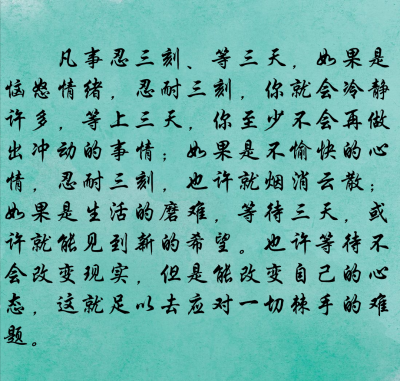 凡事忍三刻、等三天，如果是
恼怒情绪，忍耐三刻，你就会冷静
许多，等上三天，你至少不会再做
出冲动的事情；如果是不愉快的心
情，忍耐三刻，也许就烟消云散；
如果是生活的磨难，等待三天，或
许就能见到新的希望。也许等待不
会改变现实，但是能改变自己的心
态，这就足以去应对一切棘手的难
题。